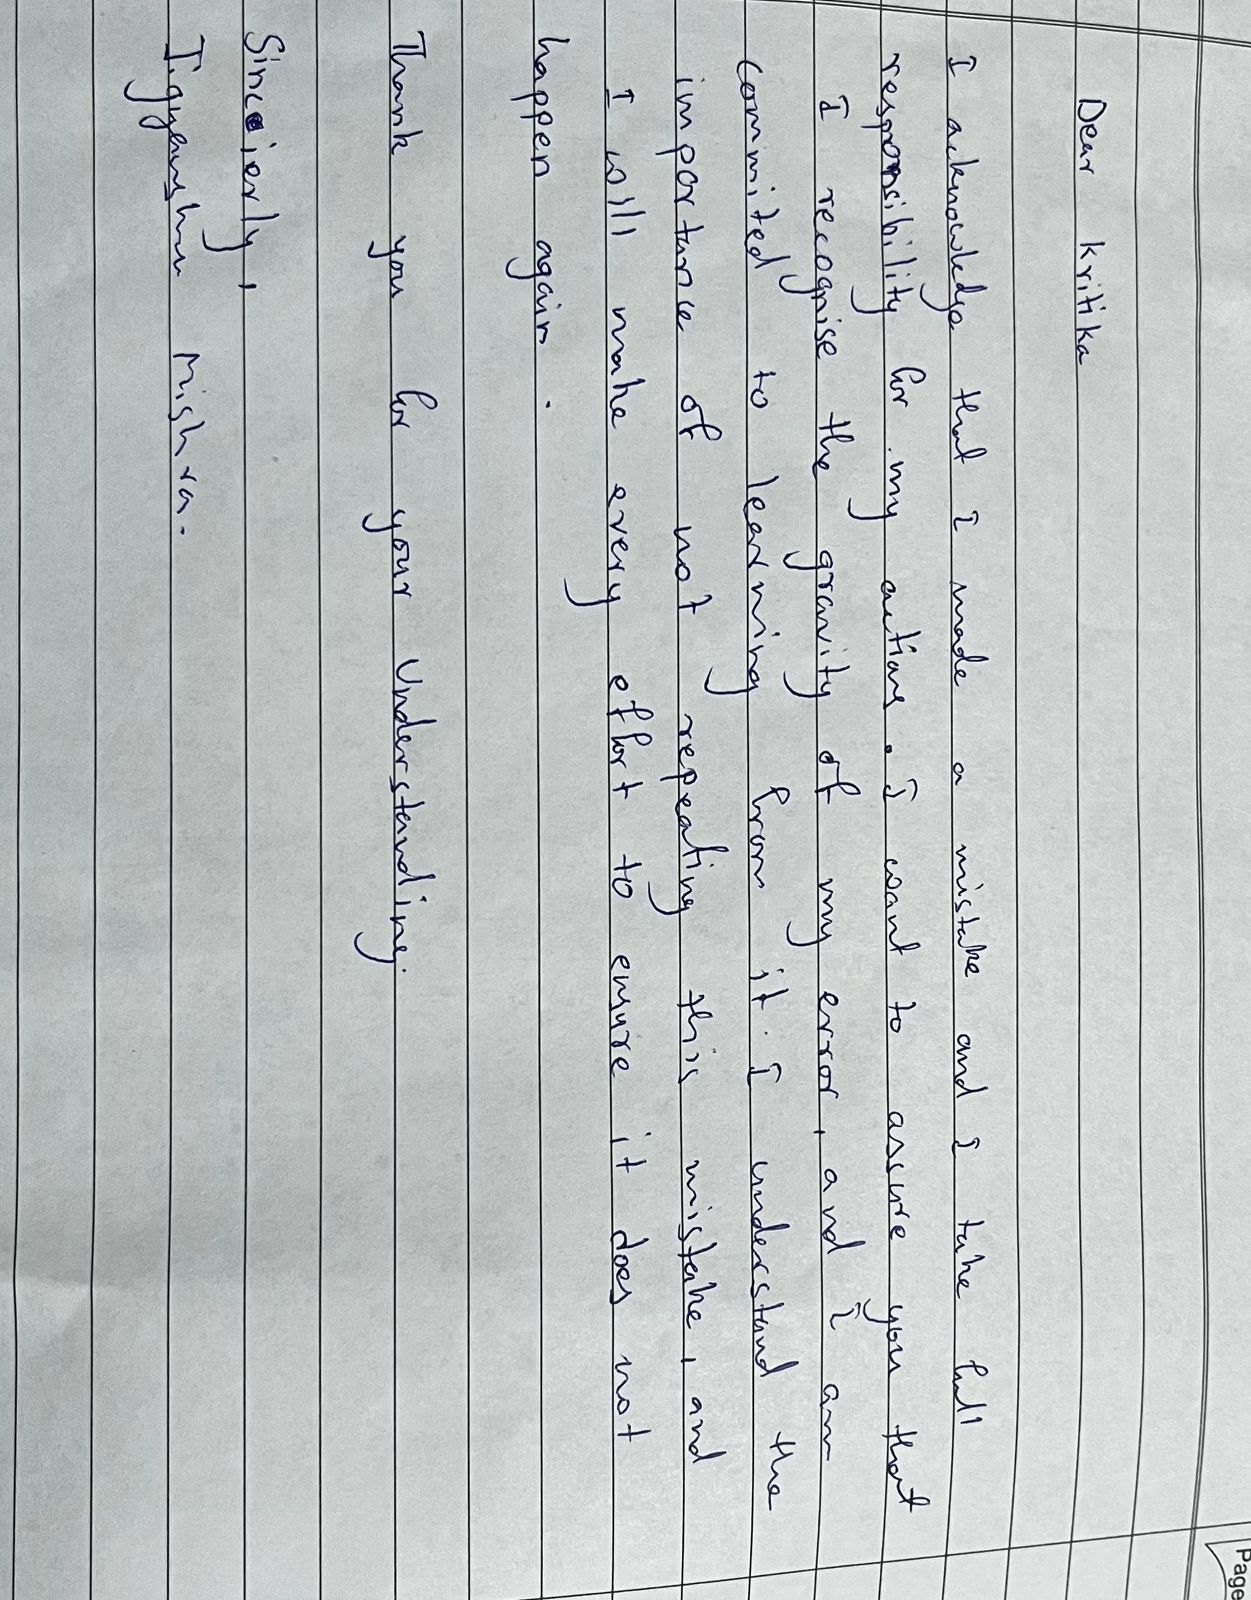 Page
Dear Kritika
I acknowledge that I made a mistake and I take full
responsibility for my actions. I want to assure you that
I recognise the gravity of my error, and I am
commited to learning from it. I understand the
importance of not repeating this mistake, and
I will make every effort to ensure it does not
happen again.
Thank you for your Understanding.
Sinceierly,
Mishra.